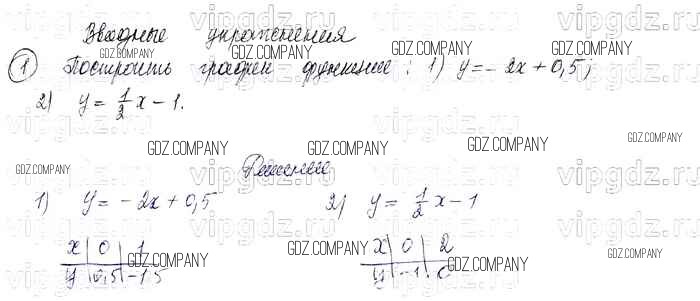 Вводные упражнения
① Построить график функции: 1) y = - 2x + 0,5;
2) y = 1/2 x - 1.
Решение
1) y = - 2x + 0,5 2) y = 1/2 x - 1
x | 0 | 1 x | 0 | 2
y | 0,5 | -1,5 y | -1 | 0
vipgdz.ru
GDZ.COMPANY